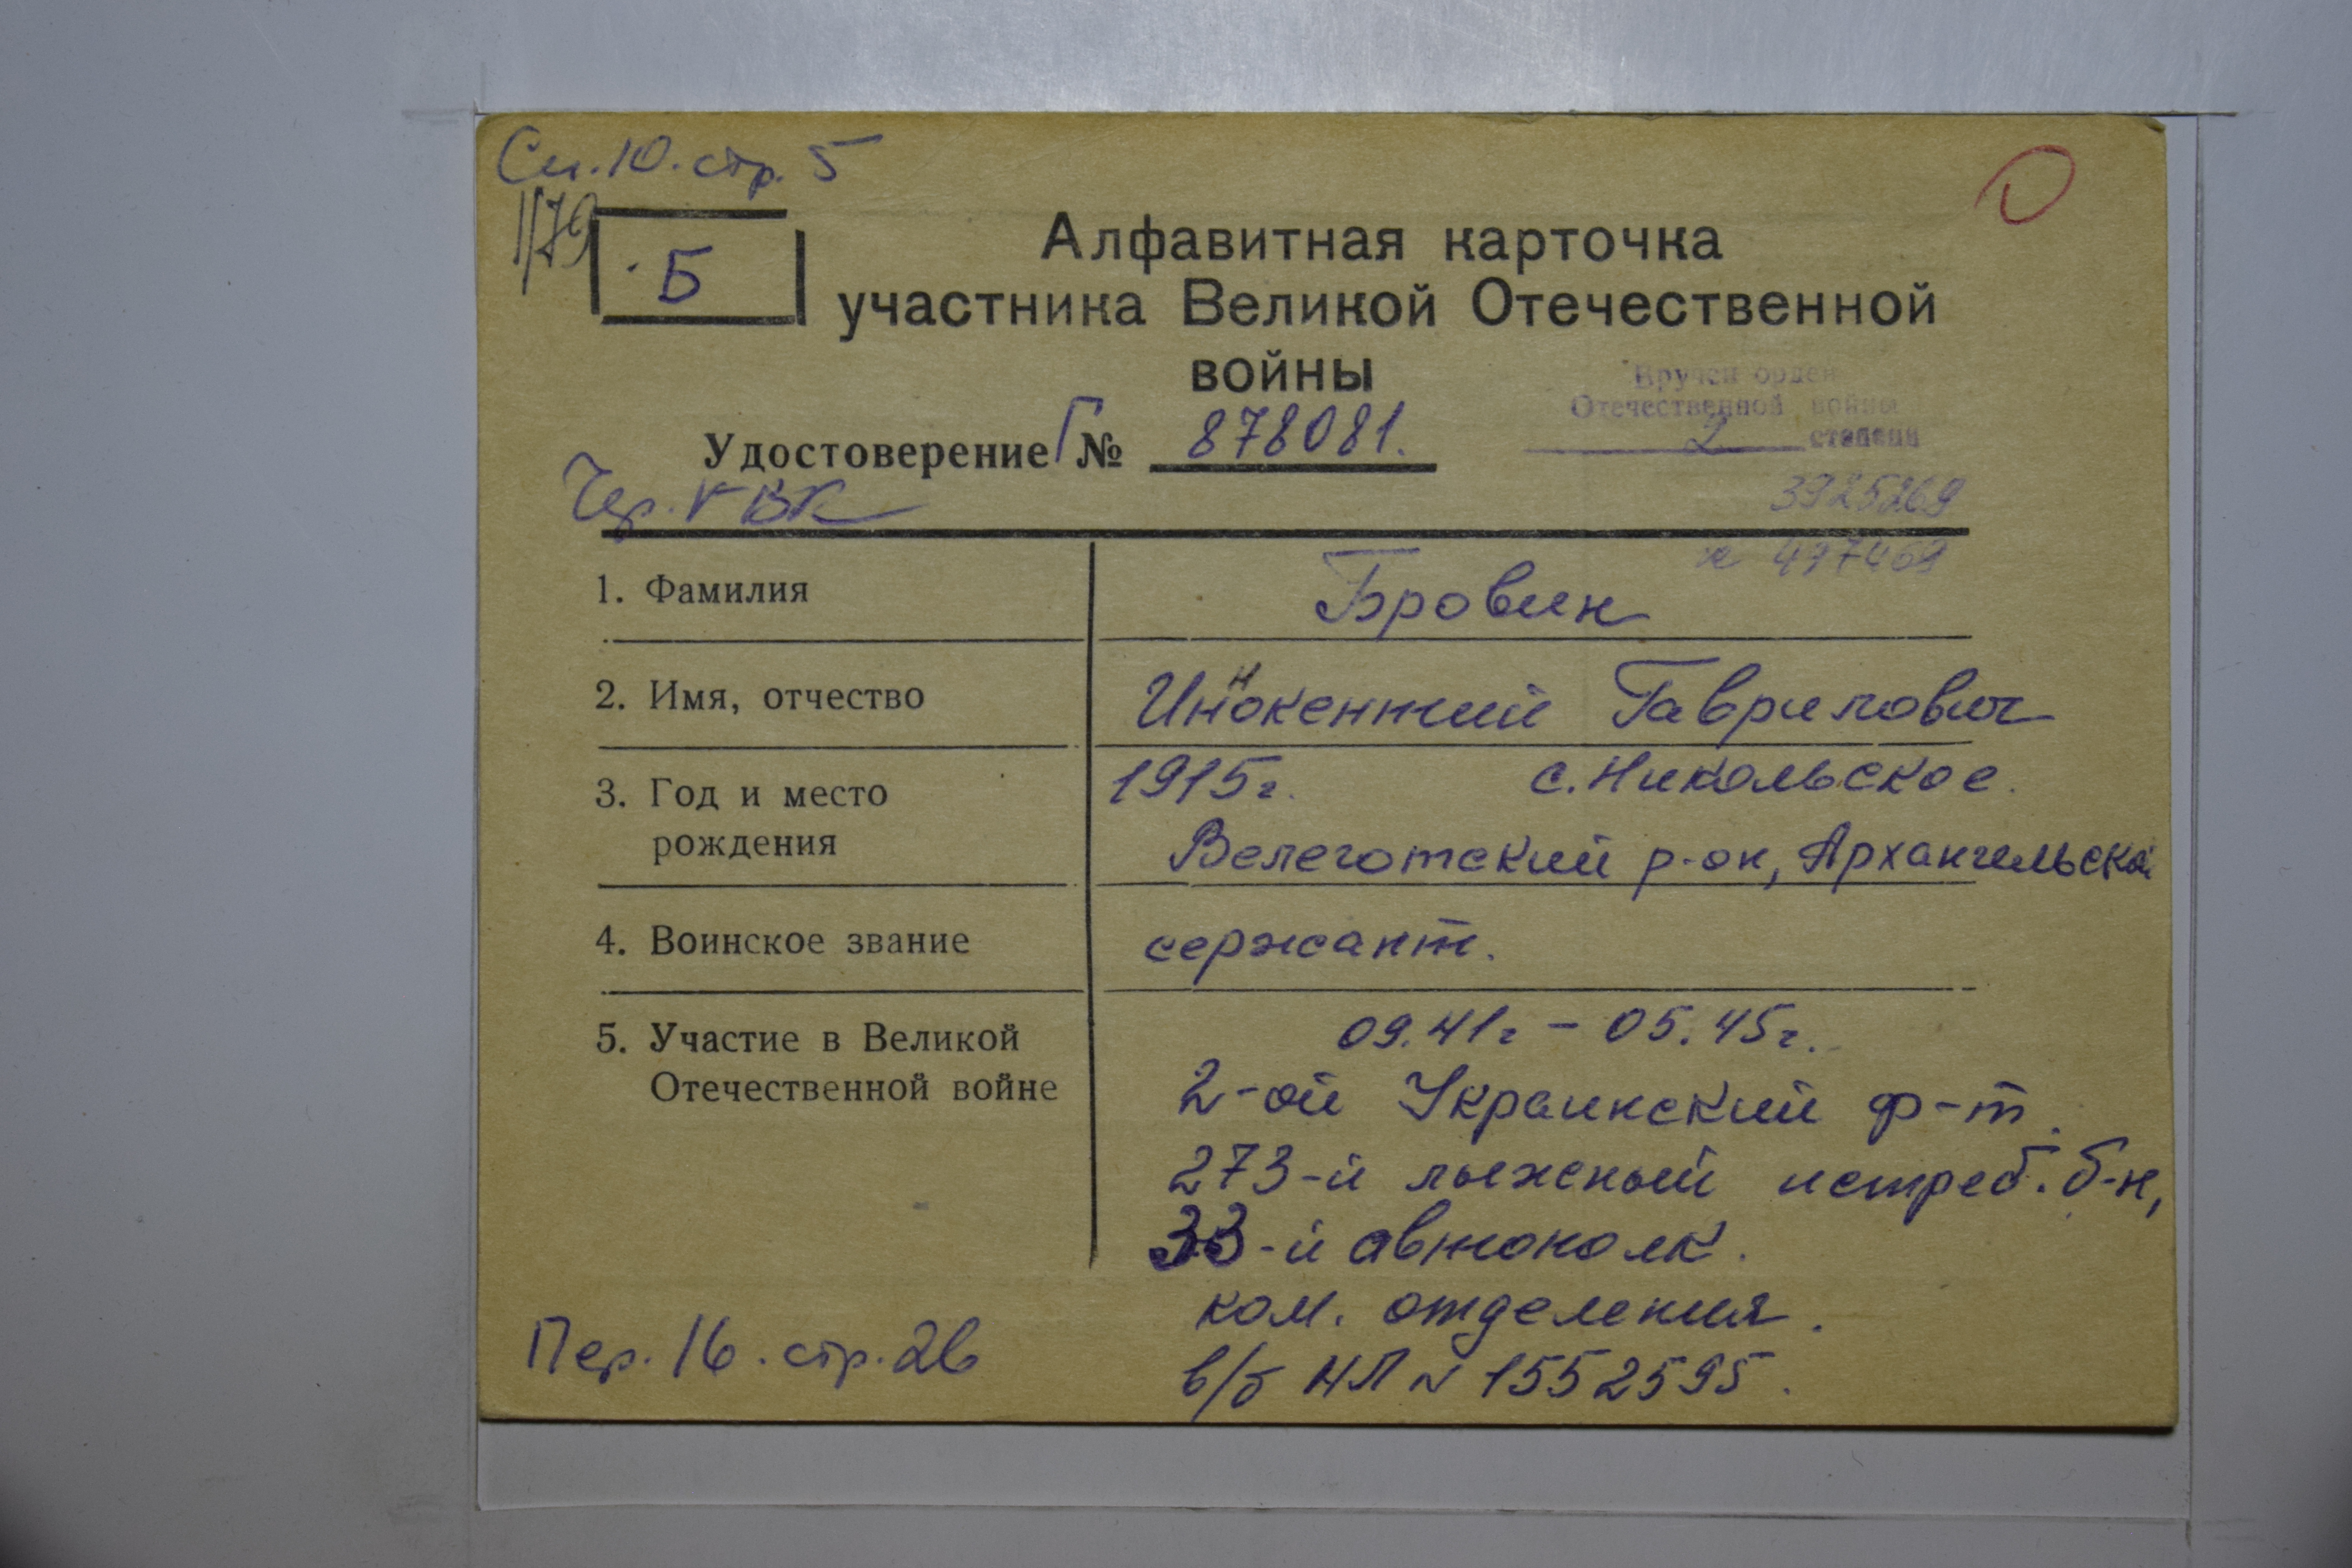 Сп.10. стр. 5
1/79
Б
Алфавитная карточка
участника Великой Отечественной
войны
Вручен орден
Отечественной войны
2 степени
Удостоверение Г № 878081.
Чер. ГВК
3925269
к 497469
1. Фамилия Бровин
2. Имя, отчество Иннокентий Гаврилович
3. Год и место 1915г. с. Никольское.
рождения Велеготский р-он, Архангельской
4. Воинское звание сержант.
5. Участие в Великой 09.41г - 05.45г.
Отечественной войне 2-ой Украинский ф-т.
273-й лыжный истреб. б-н,
33-й автополк.
ком. отделения.
Пер. 16. стр. 26 в/б НЛ № 1552595.